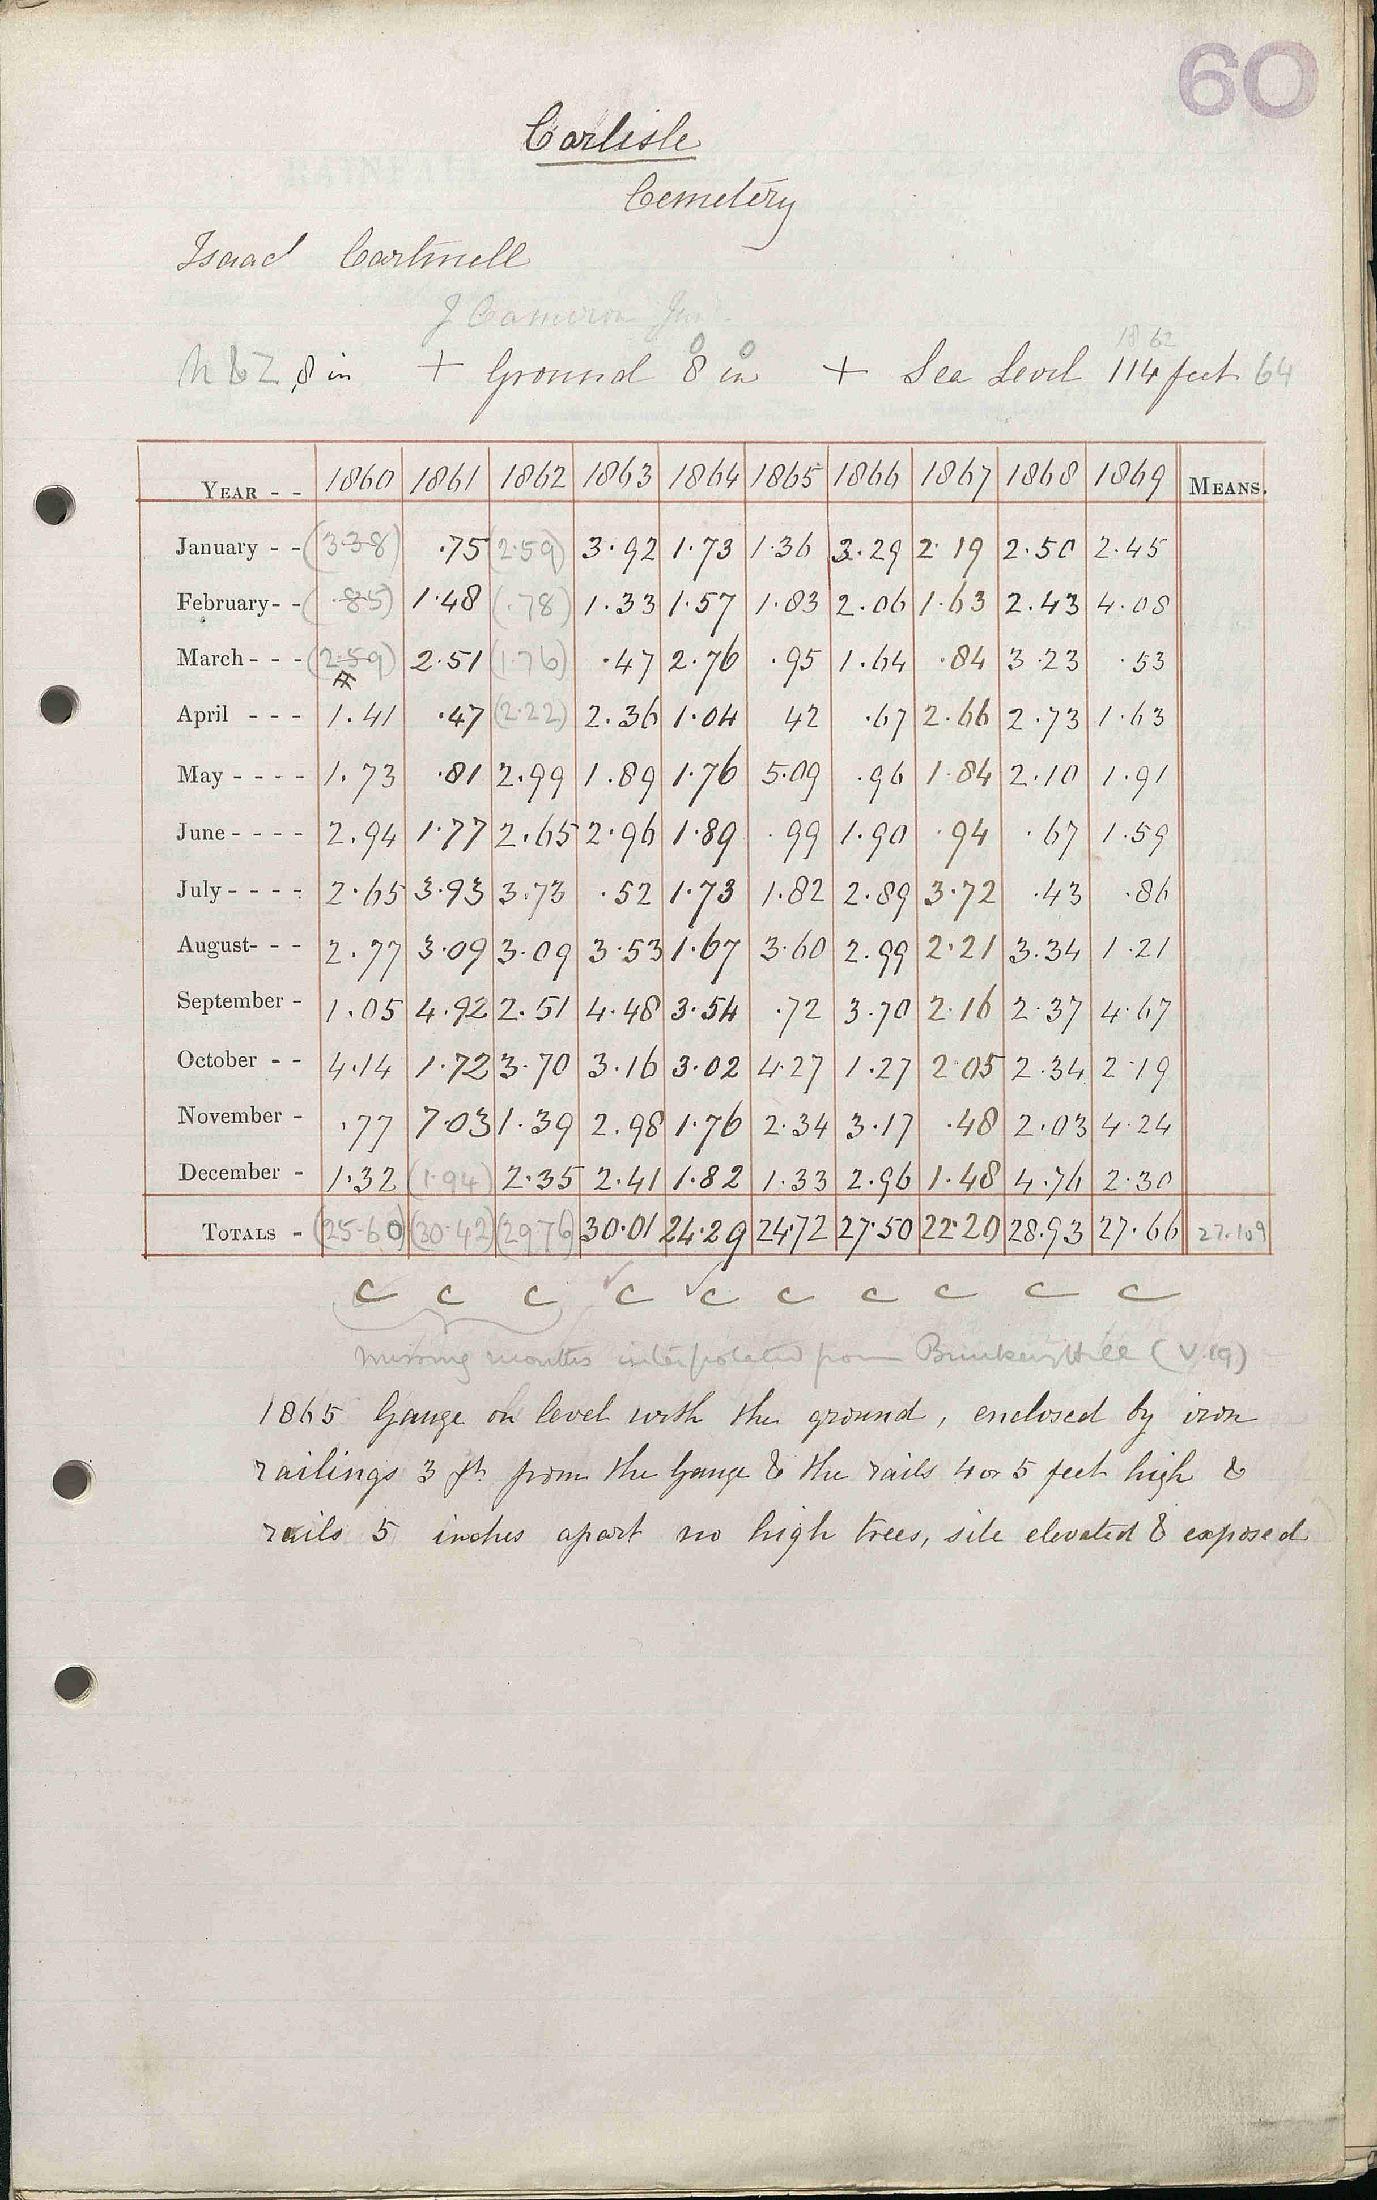 60
Carlisle
Cemetery
Isaac Cartmell
J Cameron Junr.
1862
0 0
N & Z 8 in + Ground 8 in + Sea Level 114 feet 64
YEAR - - 1860 1861 1862 1863 1864 1865 1866 1867 1868 1869 MEANS.
January - - (3.38) .75 (2.59) 3.92 1.73 1.36 3.29 2.19 2.50 2.45
February- - (.85) 1.48 (.78) 1.33 1.57 1.83 2.06 1.63 2.43 4.08
March - - - (2.59) 2.51 (1.76) .47 2.76 .95 1.64 .84 3.23 .53
April - - - 1.41 .47 (2.22) 2.36 1.04 42 .67 2.66 2.73 1.63
May - - - - 1.73 .81 2.99 1.89 1.76 5.09 .96 1.84 2.10 1.91
June - - - - 2.94 1.77 2.65 2.96 1.89 .99 1.90 .94 .67 1.59
July - - - - 2.65 3.93 3.73 .52 1.73 1.82 2.89 3.72 .43 .86
August- - - 2.77 3.09 3.09 3.53 1.67 3.60 2.99 2.21 3.34 1.21
September - 1.05 4.92 2.51 4.48 3.54 .72 3.70 2.16 2.37 4.67
October - - 4.14 1.72 3.70 3.16 3.02 4.27 1.27 2.05 2.34 2.19
November - .77 7.03 1.39 2.98 1.76 2.34 3.17 .48 2.03 4.24
December - 1.32 (1.94) 2.35 2.41 1.82 1.33 2.96 1.48 4.76 2.30
TOTALS - (25.60) (30.42) (29.76) 30.01 24.29 24.72 27.50 22.20 28.93 27.66 27.109
C C C C C C C C C C
missing months interpolated from Hill (V.19)
1865 Gauge on level with the ground, enclosed by iron
railings 3 ft from the Gauge & the rails 4 or 5 feet high &
rails 5 inches apart no high trees, site elevated & exposed